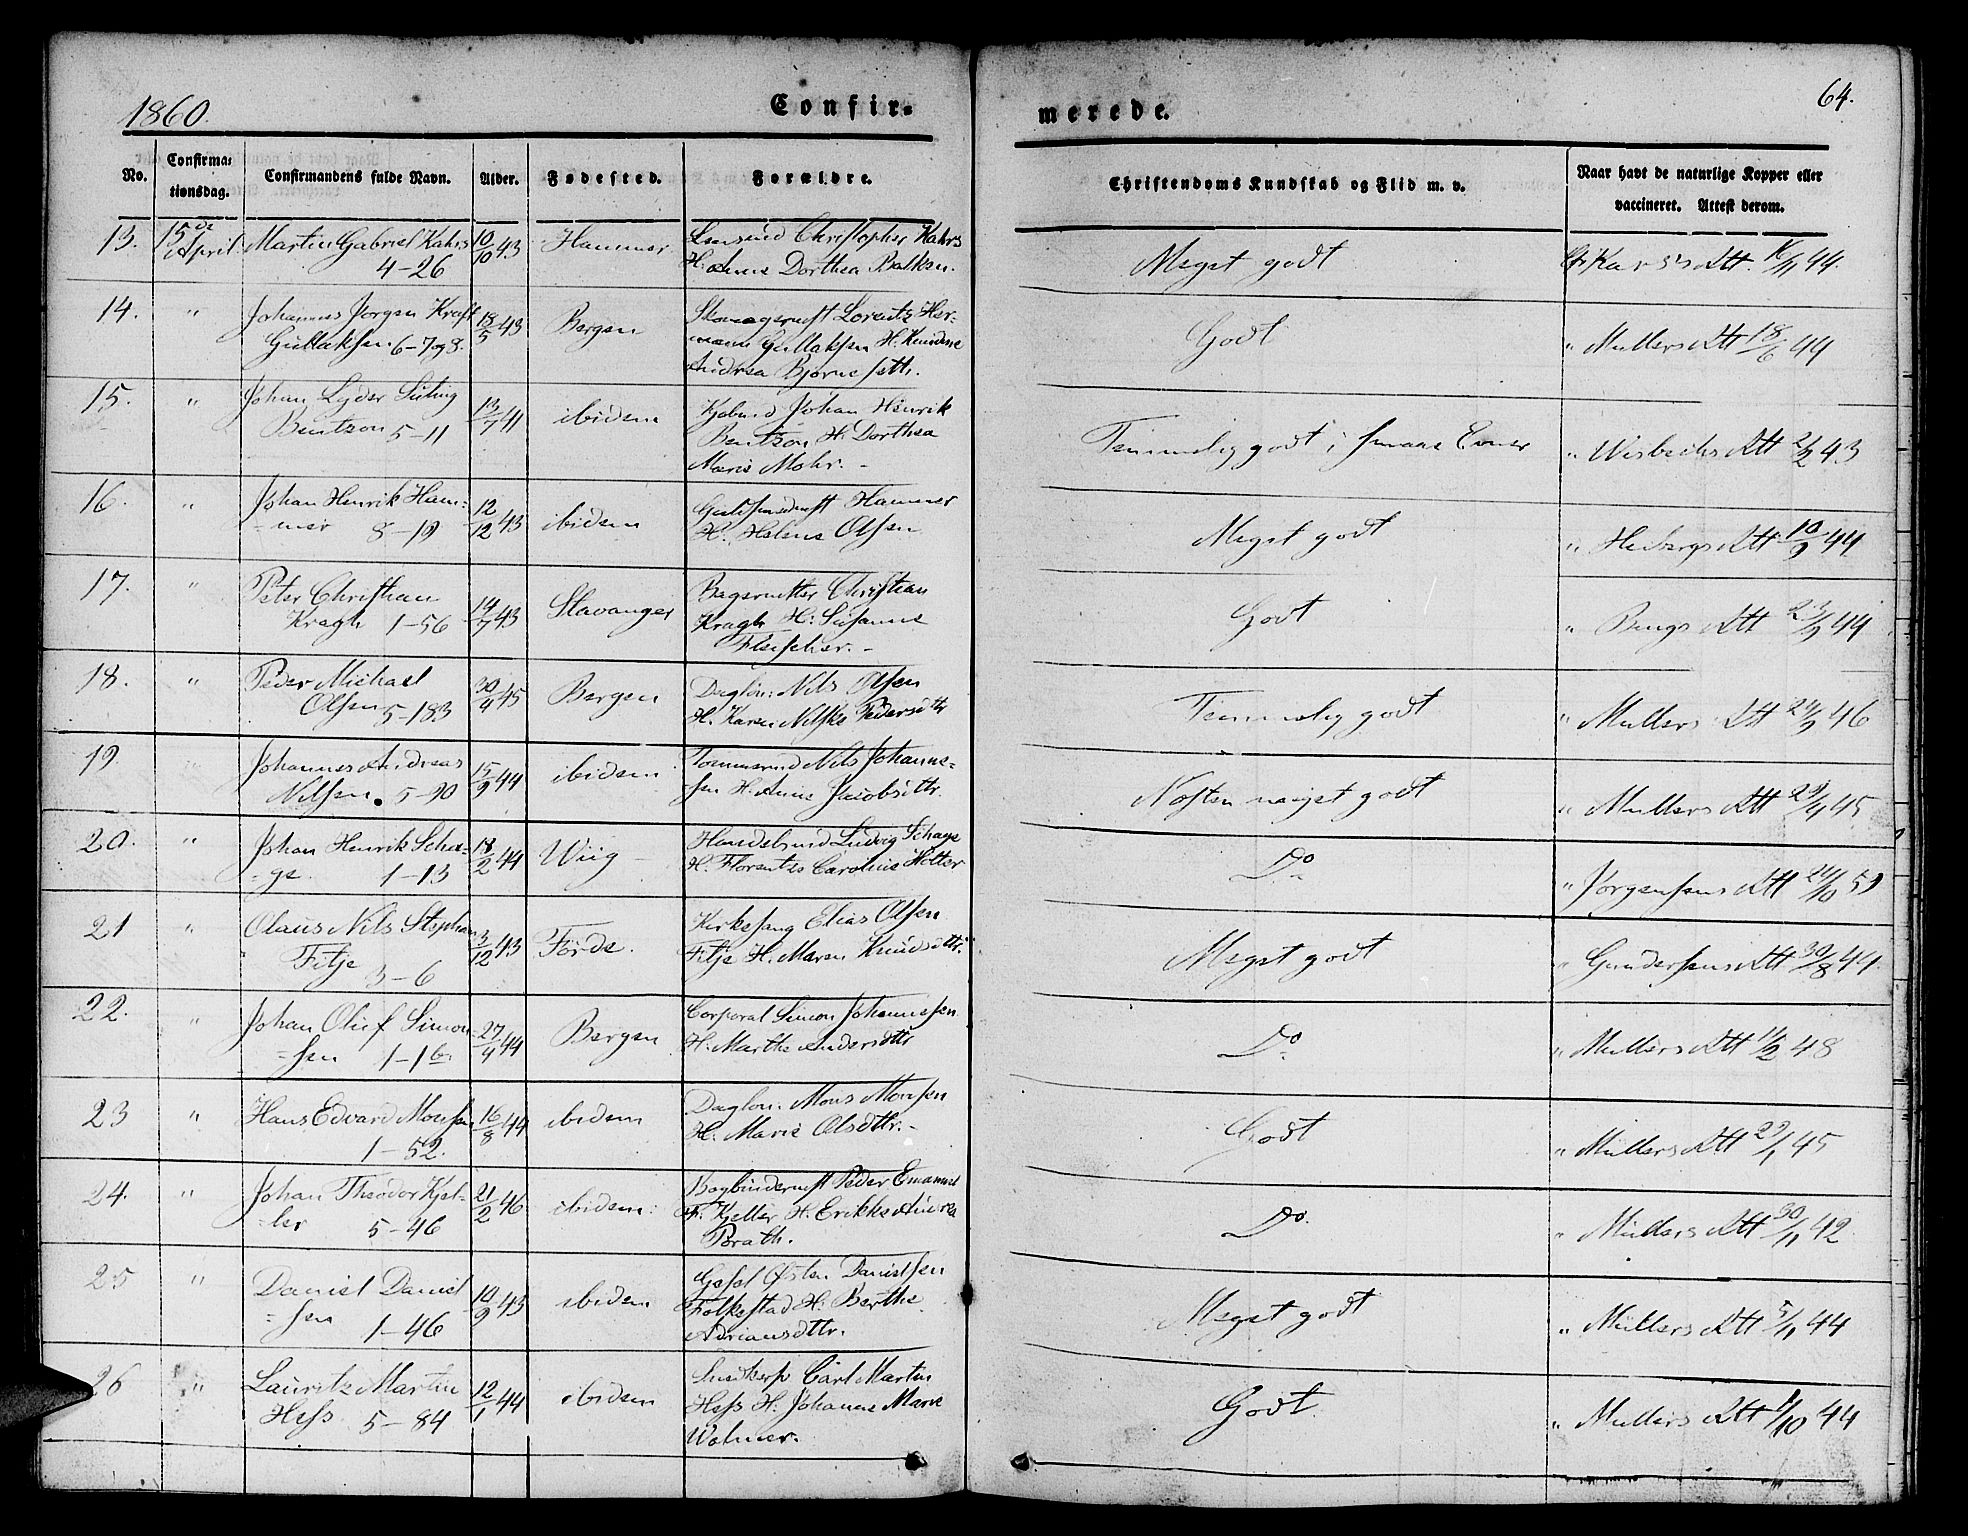 1860.
Confir-
merede.
64.
No.
Confirma-
tionsdag.
Confirmandens fulde Navn.
Alder.
Fødested.
Forældre.
Christendoms Kundskab og Flid m. v.
Naar havt de naturlige Kopper eller
vaccineret. Attest derom.
13. 15de April Martin Gabriel Kahrs 10/10 43 Hammer Christopher Kahrs
4-26 H. Anne Dorthea Balksen.
Meget godt Att. 16/11 44.
14. " Johannes Jørgen Kraft 18/5 43 Bergen Lorentz Her-
Gullaksen. 6-7og8. mann Gullaksen H. Knudine
Andrea Bjørnesettr.
Godt " Mullers Att 18/6 44
15. " Johan Lyder Süting 13/7 41 ibidem Kjøbmd Johan Henrik
Bentzon 5-11 Bentzon H. Dorthea
Marie Mohr. -
Temmelig godt; smaae Evner " Wisbechs Att 2/2 43
16. " Johan Henrik Ham- 12/12 43 ibidem Guldsmedmft Hammer
=mer 8-19 H. Helene Olsen
Meget godt " Heibergs Att 10/9 44
17. " Peter Christian 14/7 43 Stavanger Christian
Kragh 1-56 Kragh H. Susanne
Fleischer. -
Godt " Att 23/9 44
18. " Peder Michael 30/4 45 Bergen Dagløn. Nils Olsen
Olsen 5-183 H. Karen Nilske Pedersdtr
Temmelig godt " Mullers Att 24/9 46
19 " Johannes Andreas 15/9 44 ibidem Tømmermd Nils Johanne-
Nilsen. 5-90 sen H. Anne Jacobsdttr.
Næsten meget godt " Mullers Att 29/4 45
20. " Johan Henrik Scha- 18/2 44 Wiig Handelsmd Ludvig Schage
=ge. 1-13 H. Florentze Caroline Holter
Do " Jørgensens Att 24/10 59
21 " Olaus Nils Stephan 3/12 43 Førde. Kirkesang Elias Olsen
Fitje 3-6 Fitje H. Maren Knudsdttr.
Meget godt " Gundersens Att 30/8 44.
22. " Johan Oluf Simon- 27/4 44 Bergen Corporal Simon Johannesen
=sen 1-1b H. Marthe Andersdttr
Do " Mullers Att 11/2 48
23 " Hans Edvard Monsen 16/8 44 ibidem Dagløn. Mons Monsen
1-52. H. Marie Olsdttr. -
Godt " Müllers Att 29/1 45
24. " Johan Theodor Kjel- 21/2 46 ibidem. Bogbindermft Peder Emanuel
=ler 5-46 F. Kjeller H. Erikke Andrea
Porath.
Do. " Müllers Att 30/11 42
25 " Daniel Daniel 10/9 43 ibidem Østen Danielsen
=sen 1-46 Folkestad H. Berthe
Adriansdttr.
Meget godt " Müllers Att 5/11 44
26 " Lauritz Martin 12/1 44 ibidem Carl Martin
Hess 5-84 Hess H. Johanne Marie
Wolmer.
Godt. " Mullers Att 1/10 44